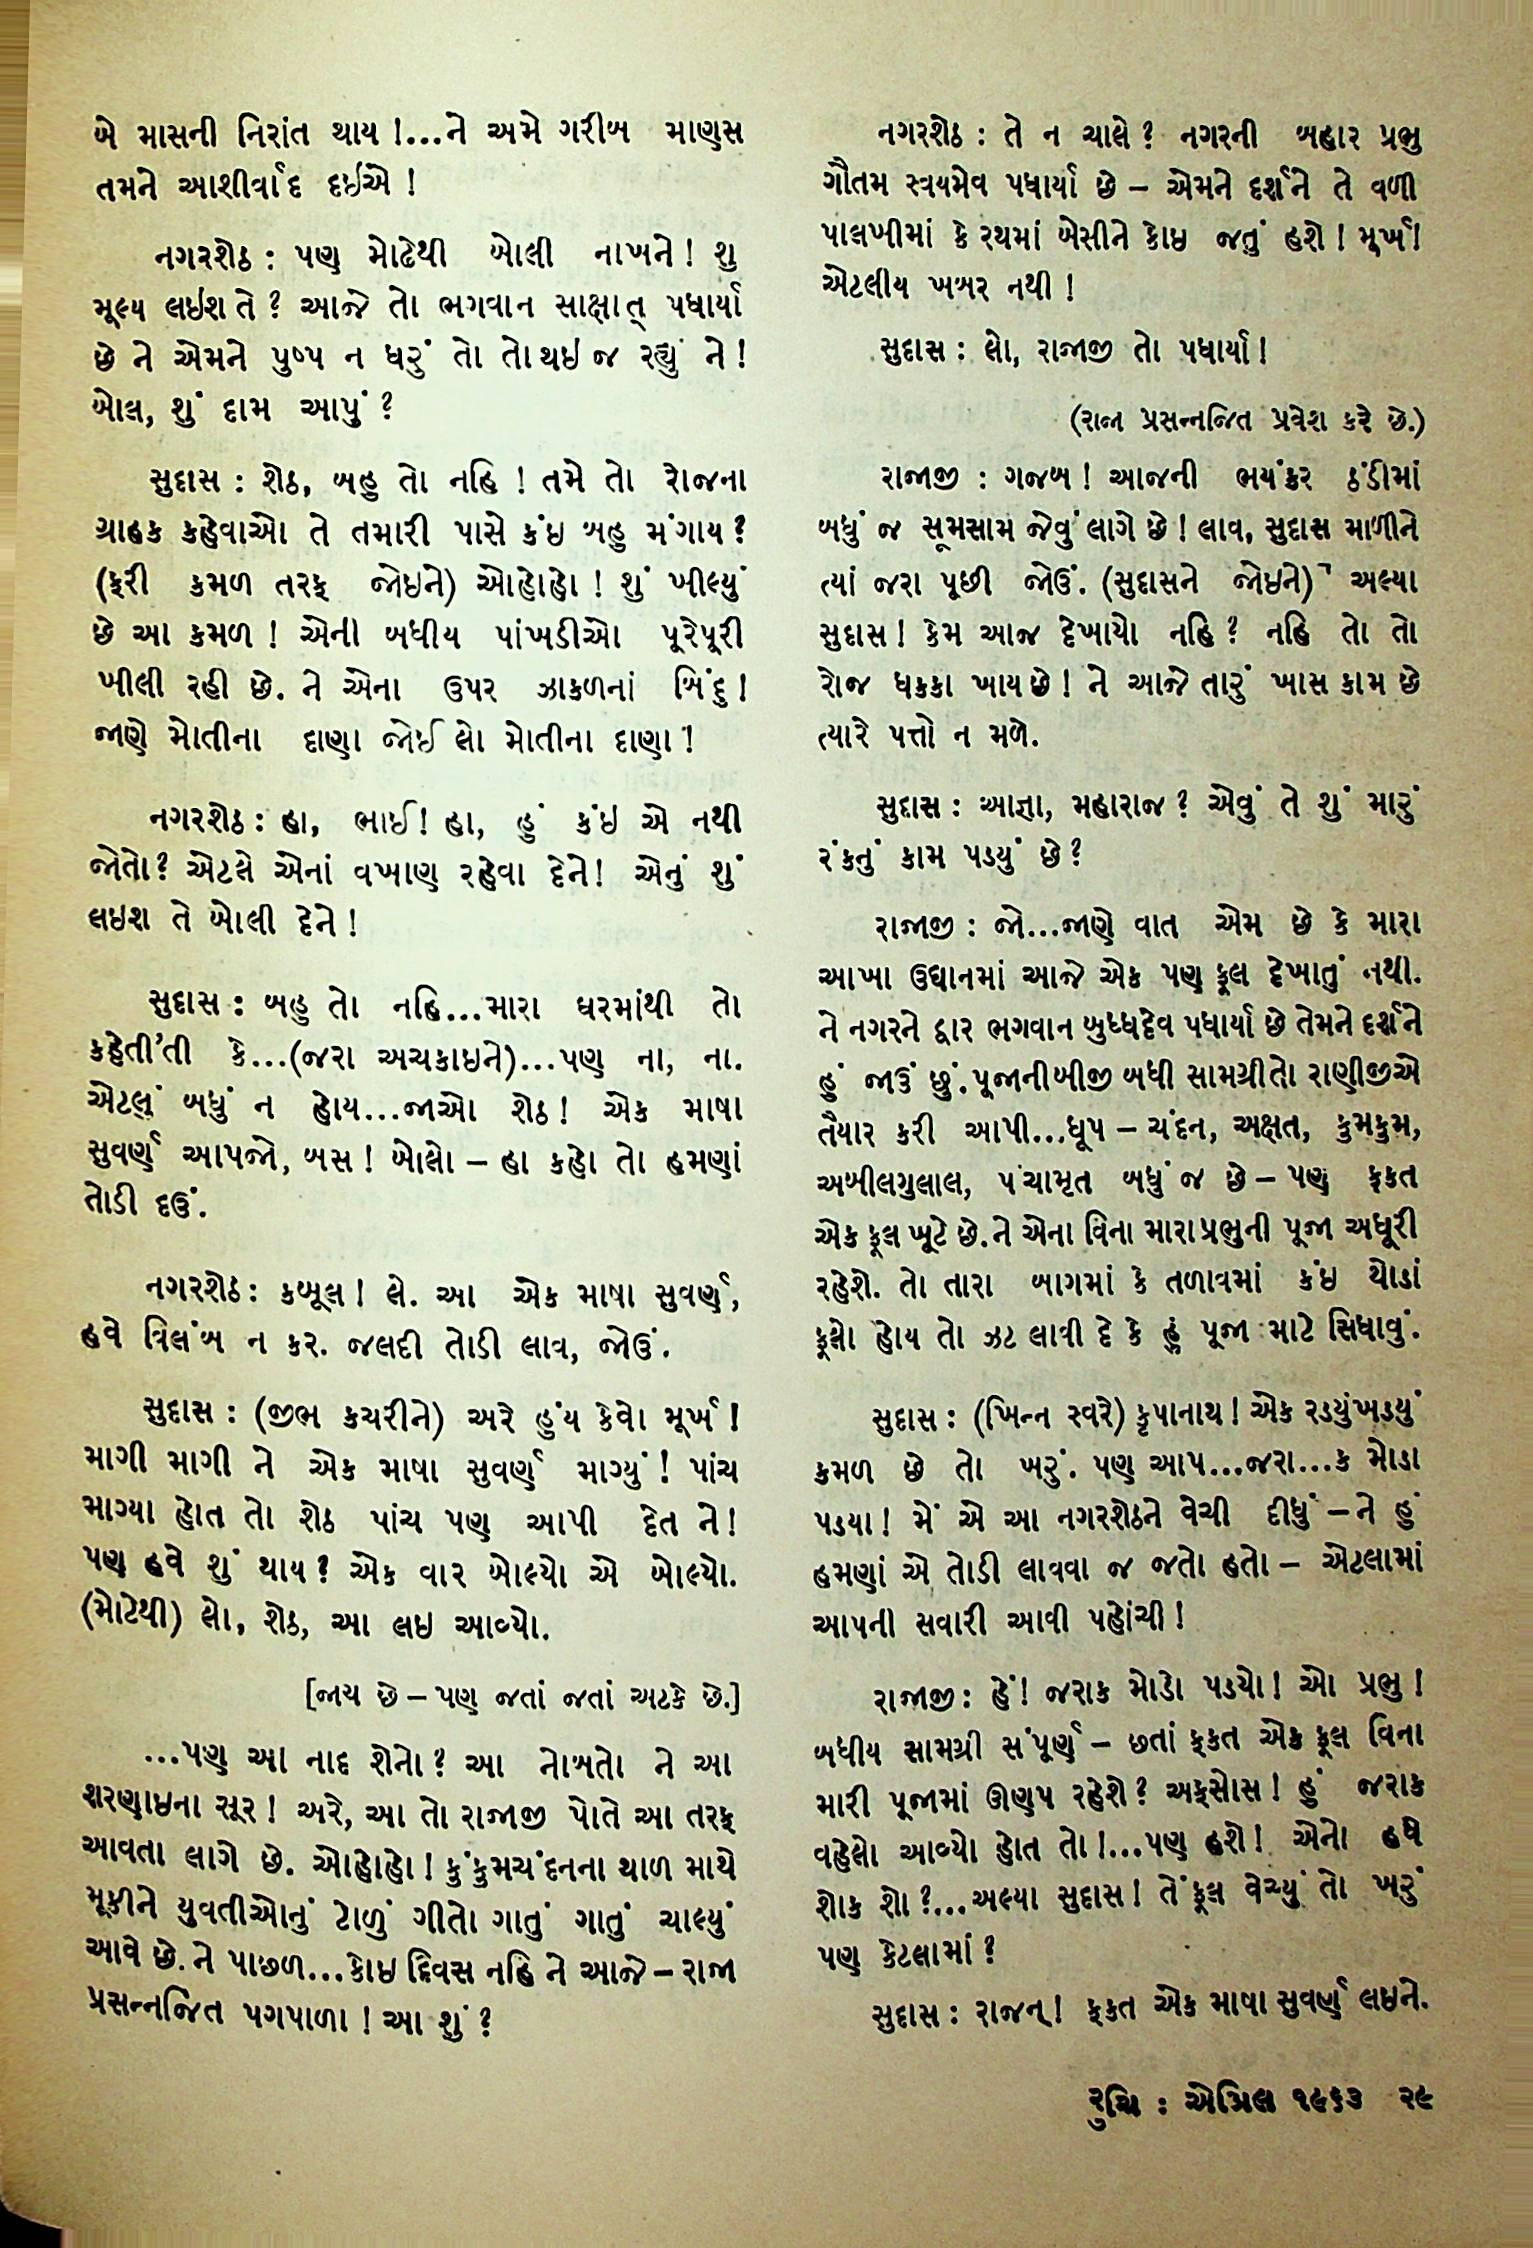 બે માસની નિરાંત થાય !...ને અમે ગરીબ માણસ
તમને આશીર્વાદ દઈએ !
નગરશેઠ : પણ મોઢેથી બોલી નાખને! શુ
મૂલ્ય લઇશ તે? આજે તો ભગવાન સાક્ષાત્ પધાર્યા
છે ને એમને પુષ્પ ન ધરું તો તો થઇ જ રહ્યું ને!
બોલ, શું દામ આપું?
સુદાસ : શેઠ, બહુ તો નહિ ! તમે તો રોજના
ગ્રાહક કહેવાઓ તે તમારી પાસે કંઇ બહુ મંગાય?
(ફરી કમળ તરફ જોઇને) ઓહોહો ! શું ખીલ્યું
છે આ કમળ ! એની બધીય પાંખડીઓ પૂરેપૂરી
ખીલી રહી છે. ને એના ઉપર ઝાકળનાં બિંદુ!
જાણે મોતીના દાણા જોઈ લો મોતીના દાણા !
નગરશેઠ : હા, ભાઈ! હા, હું કંઇ એ નથી
જોતો? એટલે એનાં વખાણ રહેવા દેને! એનું શું
લઇશ તે બોલી દેને !
સુદાસ : બહુ તો નહિ...મારા ઘરમાંથી તો
કહેતી'તી કે...(જરા અચકાઇને)...પણ ના, ના.
એટલું બધું ન હોય...જાઓ શેઠ! એક માષા
સુવર્ણ આપજો, બસ! બોલો – હા કહો તો હમણાં
તોડી દઉં.
નગરશેઠ : કબૂલ! લે. આ એક માષા સુવર્ણ,
હવે વિલંબ ન કર. જલદી તોડી લાવ, જોઉં.
સુદાસ : (જીભ કચરીને) અરે હુંય કેવો મૂર્ખ !
માગી માગી ને એક માષા સુવર્ણ માગ્યું! પાંચ
માગ્યા હોત તો શેઠ પાંચ પણ આપી દેત ને!
પણ હવે શું થાય? એક વાર બોલ્યો એ બોલ્યો.
(મોટેથી) લો, શેઠ, આ લઇ આવ્યો.
[જાય છે – પણ જતાં જતાં અટકે છે.]
...પણ આ નાદ શેનો? આ નોબતો ને આ
શરણાઇના સૂર! અરે, આ તો રાજાજી પોતે આ તરફ
આવતા લાગે છે. ઓહોહો! કુંકુમચંદનના થાળ માથે
મૂકીને યુવતીઓનું ટોળું ગીતો ગાતું ગાતું ચાલ્યું
આવે છે. ને પાછળ...કોઇ દિવસ નહિ ને આજે – રાજા
પ્રસન્નજિત પગપાળા ! આ શું ?
નગરશેઠ : તે ન ચાલે? નગરની બહાર પ્રભુ
ગૌતમ સ્વયમેવ પધાર્યા છે – એમને દર્શને તે વળી
પાલખીમાં કે રથમાં બેસીને કોઇ જતું હશે! મૂર્ખ!
એટલીય ખબર નથી !
સુદાસ : લો, રાજાજી તો પધાર્યા!
(રાજા પ્રસન્નજિત પ્રવેશ કરે છે.)
રાજાજી : ગજબ! આજની ભયંકર ઠંડીમાં
બધું જ સૂમસામ જેવું લાગે છે! લાવ, સુદાસ માળીને
ત્યાં જરા પૂછી જોઉં. (સુદાસને જોઇને) અલ્યા
સુદાસ! કેમ આજ દેખાયો નહિ? નહિ તો તો
રોજ ધક્કા ખાય છે! ને આજે તારું ખાસ કામ છે
ત્યારે પત્તો ન મળે.
સુદાસ : આજ્ઞા, મહારાજ? એવું તે શું મારું
રંકનું કામ પડયું છે?
રાજાજી : જો...જાણે વાત એમ છે કે મારા
આખા ઉદ્યાનમાં આજે એક પણ ફૂલ દેખાતું નથી.
ને નગરને દ્વાર ભગવાન બુધ્ધદેવ પધાર્યા છે તેમને દર્શને
હું જાઉં છું. પૂજાની બીજી બધી સામગ્રી તો રાણીજીએ
તૈયાર કરી આપી...ધૂપ – ચંદન, અક્ષત, કુમકુમ,
અબીલગુલાલ, પંચામૃત બધું જ છે – પણ ફક્ત
એક ફૂલ ખૂટે છે. ને એના વિના મારા પ્રભુની પૂજા અધૂરી
રહેશે. તો તારા બાગમાં કે તળાવમાં કંઇ થોડાં
ફૂલો હોય તો ઝટ લાવી દે કે હું પૂજા માટે સિધાવું.
સુદાસ : (ખિન્ન સ્વરે) કૃપાનાથ! એક રડયુંખડયું
કમળ છે તો ખરું. પણ આપ...જરા...ક મોડા
પડયા! મેં એ આ નગરશેઠને વેચી દીધું – ને હું
હમણાં એ તોડી લાવવા જ જતો હતો – એટલામાં
આપની સવારી આવી પહોંચી!
રાજાજી : હેં! જરાક મોડો પડયો! ઓ પ્રભુ!
બધીય સામગ્રી સંપૂર્ણ – છતાં ફક્ત એક ફૂલ વિના
મારી પૂજામાં ઊણપ રહેશે? અફસોસ! હું જરાક
વહેલો આવ્યો હોત તો!...પણ હશે! એનો હવે
શોક શો ?...અલ્યા સુદાસ! તેં ફૂલ વેચ્યું તો ખરું
પણ કેટલામાં?
સુદાસ : રાજન્! ફક્ત એક માષા સુવર્ણ લઇને.
રુચિ : એપ્રિલ ૧૯૬૩ ૨૯